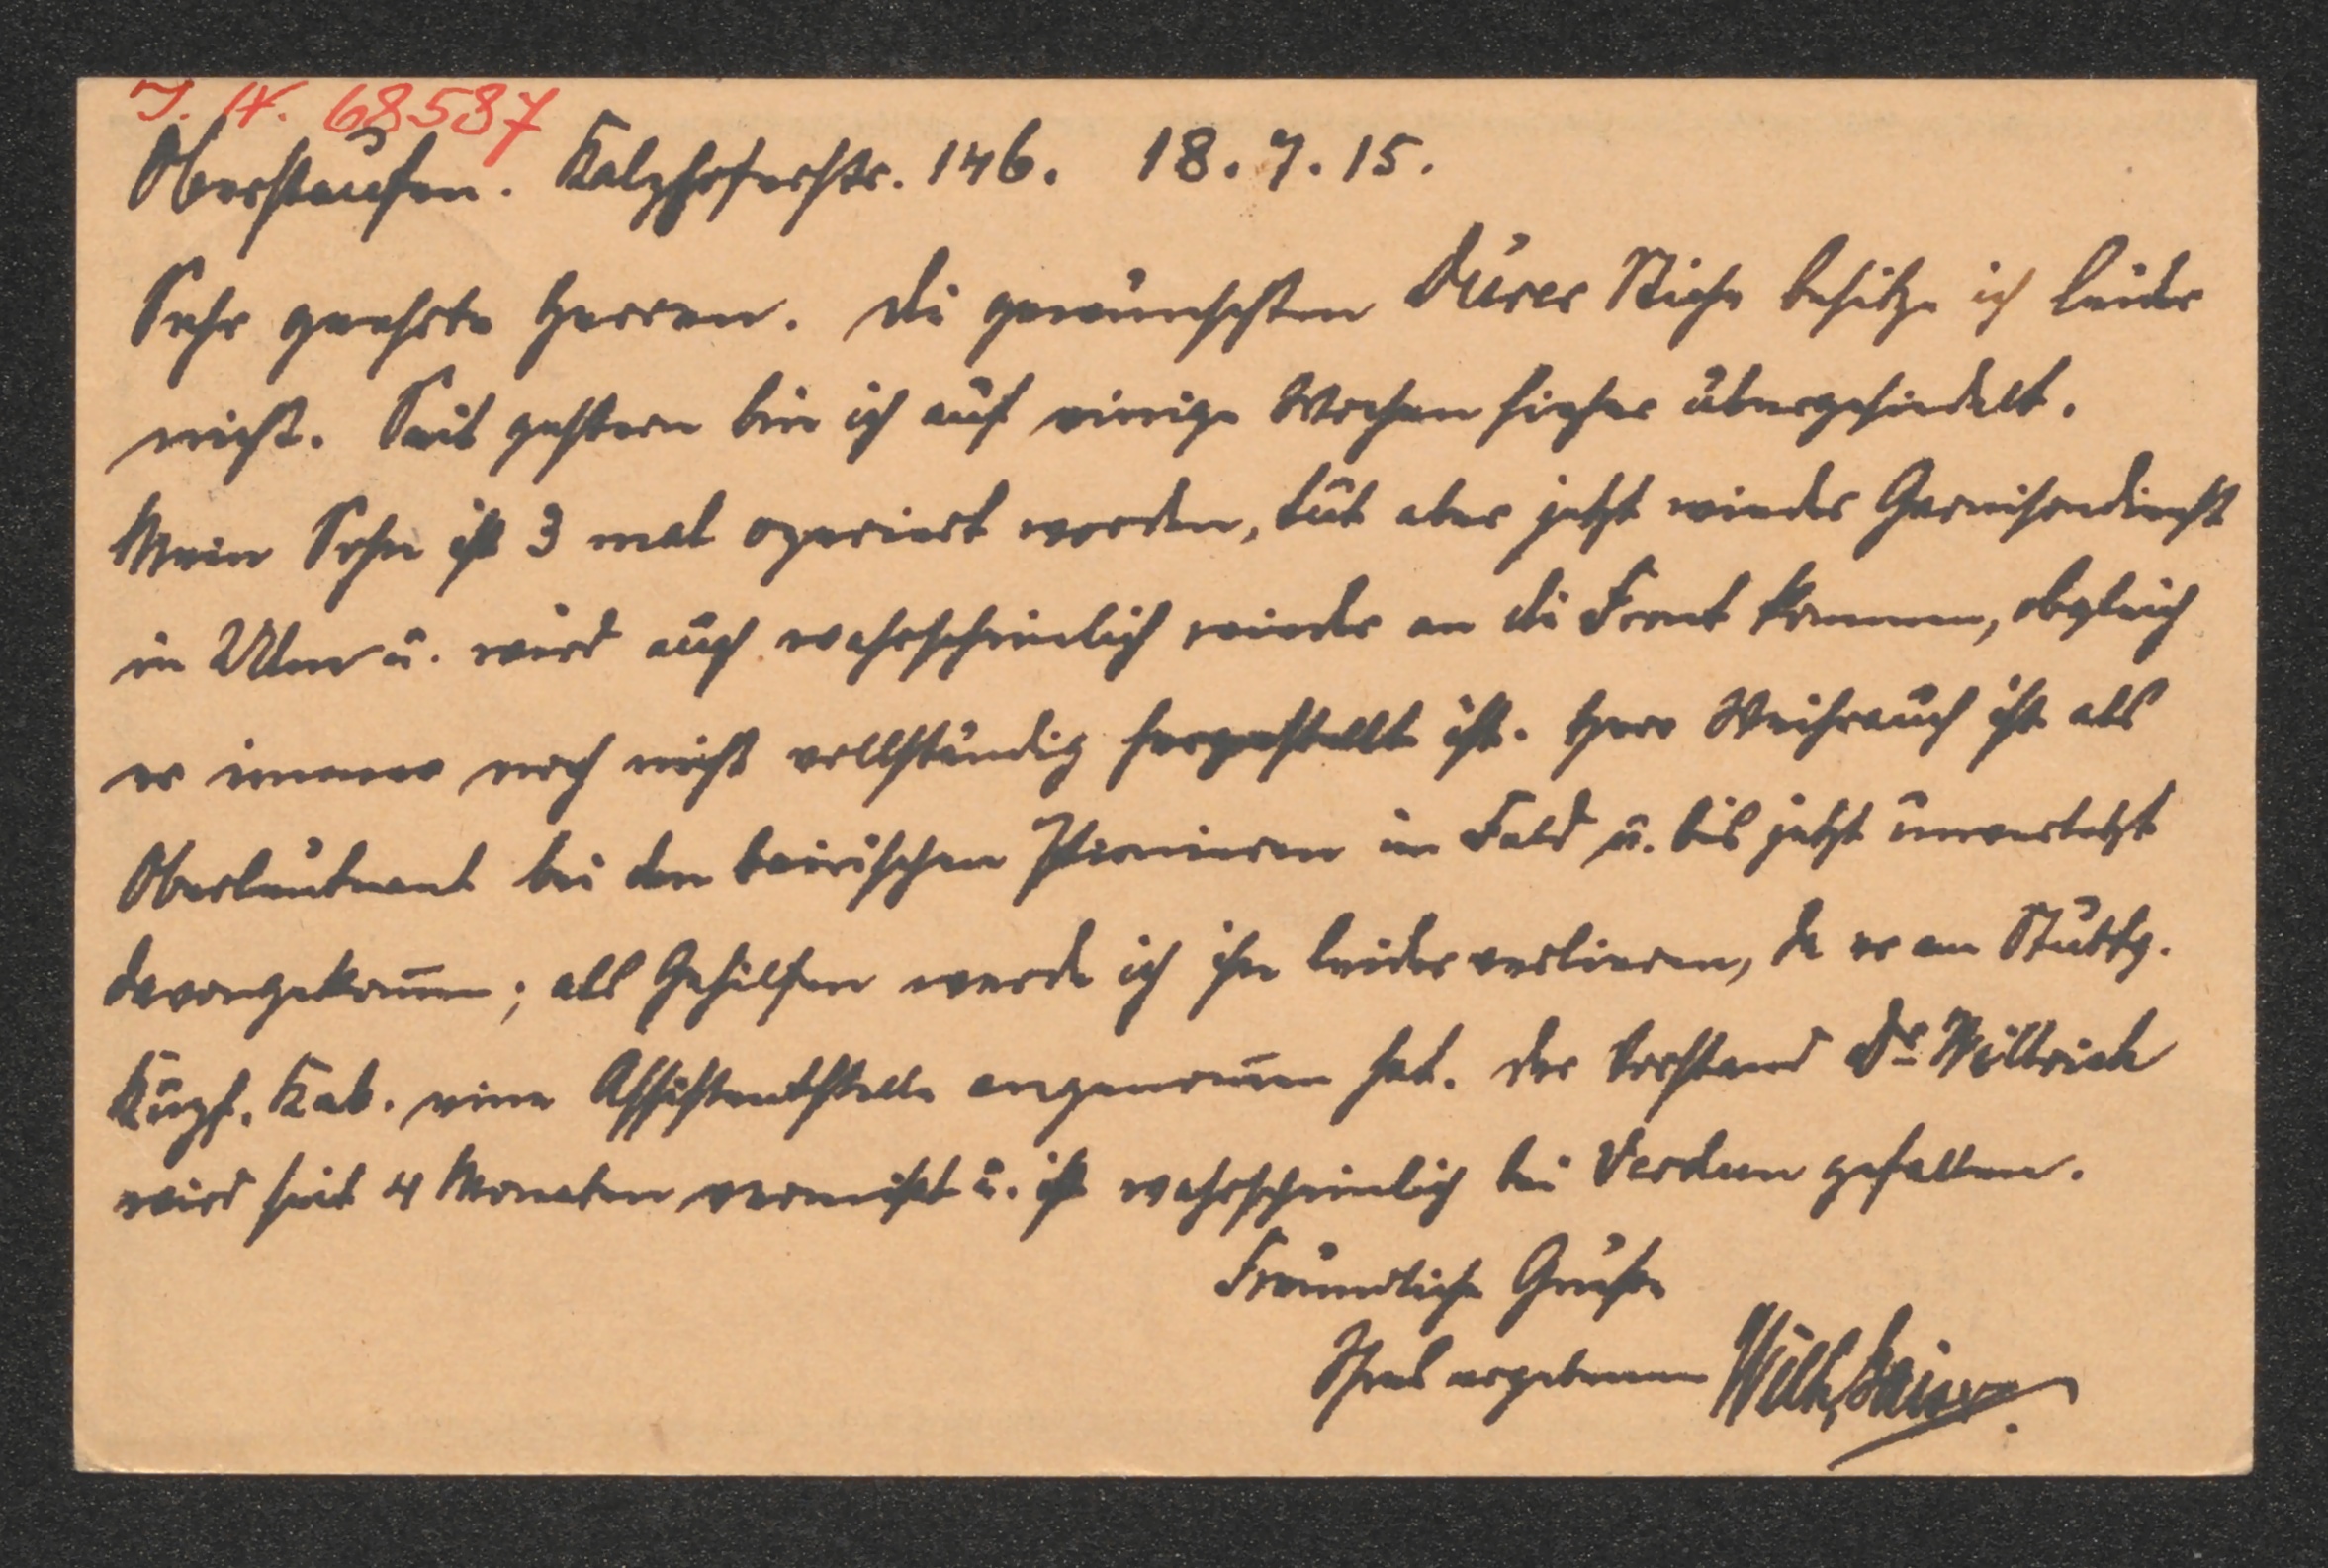 I. N. 68587
Oberstaufen. Kalzhoferstr. 146. 18.7.15.
Sehr geehrte Herren. Di gewünschten Dürer Stiche besitze ich leider
nicht. Seit gestern bin ich auf einige Wochen hieher übergesiedelt.
Mein Sohn ist 3 mal operiert worden, tut aber jetzt wieder Garnisondienst
in Ulm u. wird auch wahrscheinlich wieder an di Front kommen, obgleich
er immer noch nicht vollständig hergestellt ist. Herr Weihrauch ist als
Oberleutnant bei den bairischen Pionieren im Feld u. bis jetzt unverletzt
davongekom̅en; als Gehilfen werde ich ihn leider verlieren, da er am Stuttg.
Kupf. Kab. eine Assistentstelle angenom̅en hat. Der Vorstand Dr Willrich
wird seit 4 Monaten vermißt u. ist wahrscheinlich bei Verdun gefallen.
Freundliche Grüße
Ihres ergebenen Wilh.